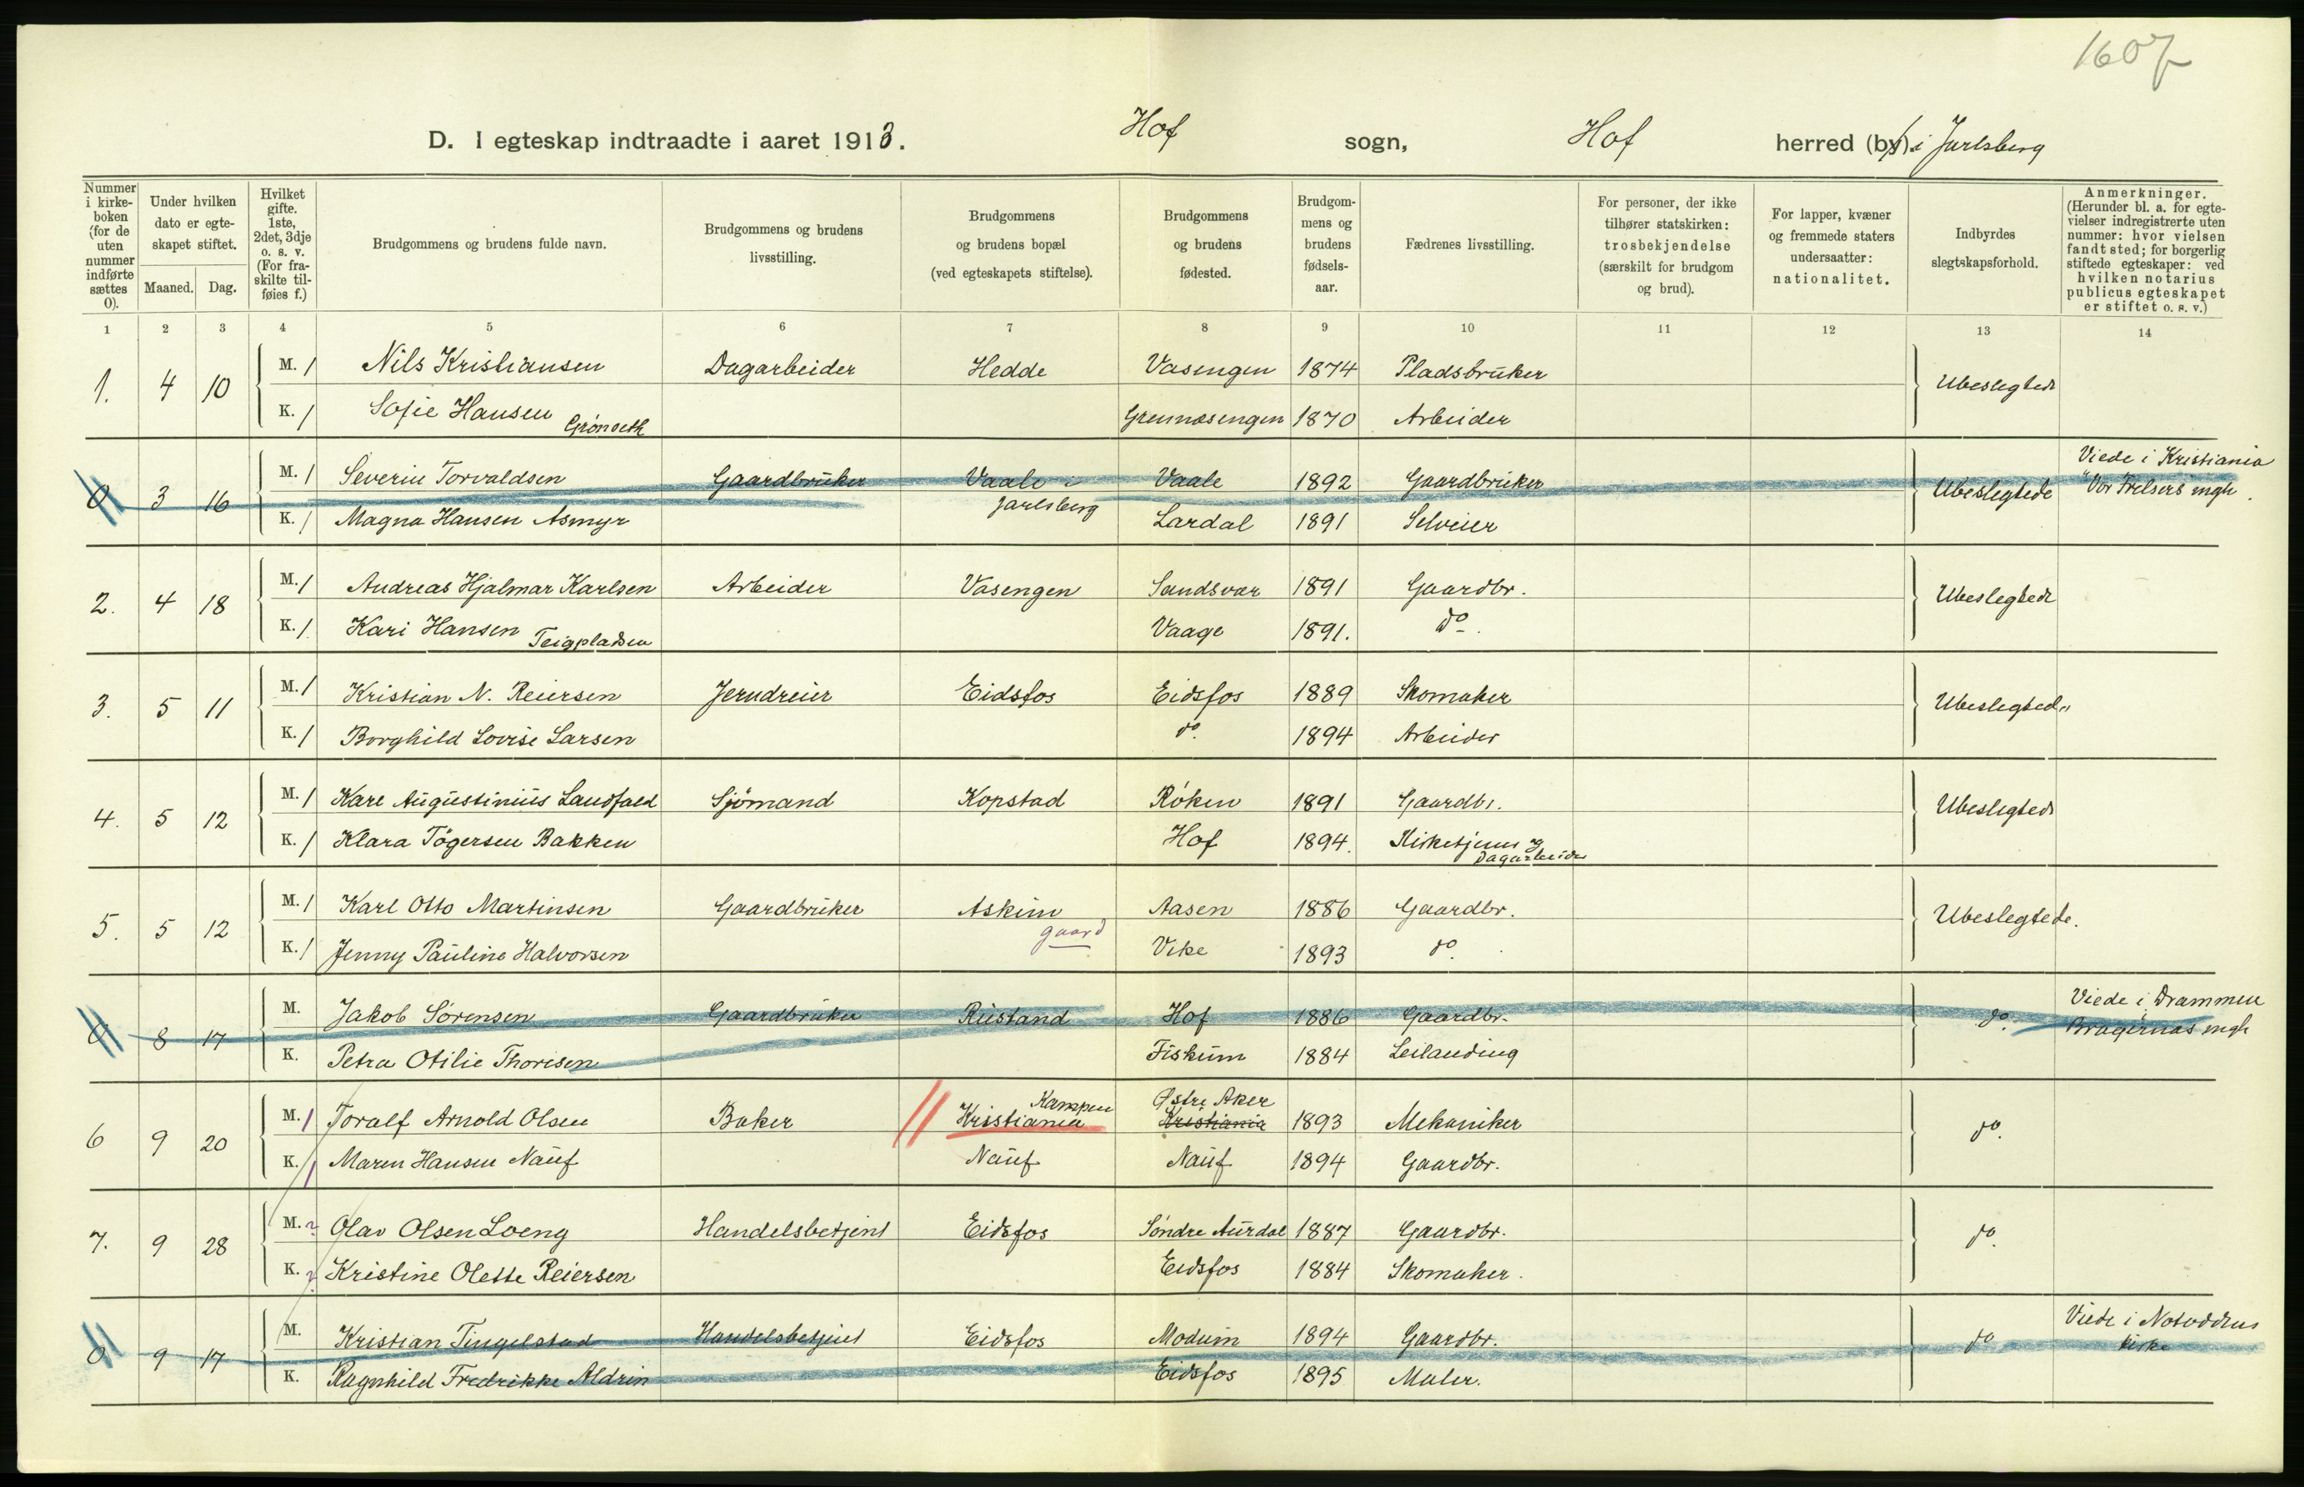 1607
D. I egteskap indtraadte i aaret 1913. Hof sogn, Hof herred (by) i Jarlsberg
Nummer i kirkeboken (for de uten nummer indførte sættes 0).
Under hvilken dato er egteskapet stiftet.
Maaned. Dag.
Hvilket gifte. 1ste, 2det, 3dje o. s. v. (For fraskilte tilføies f.)
Brudgommens og brudens fulde navn.
Brudgommens og brudens livsstilling.
Brudgommens og brudens bopæl (ved egteskapets stiftelse).
Brudgommens og brudens fødested.
Brudgommens og brudens fødselsaar.
Fædrenes livsstilling.
For personer, der ikke tilhører statskirken: trosbekjendelse (særskilt for brudgom og brud).
For lapper, kvæner og fremmede staters undersaatter: nationalitet.
Indbyrdes slegtskapsforhold.
Anmerkninger. (Herunder bl. a. for egtevielser indregistrerte uten nummer: hvor vielsen fandt sted; for borgerlig stiftede egteskaper: ved hvilken notarius publicus egteskapet er stiftet o. s. v.)
1 2 3 4 5 6 7 8 9 10 11 12 13 14
1. 4 10 M. 1 Nils Kristiansen Dagarbeider Hedde Vasengen 1874 Pladsbruker Ubeslegtede
K. 1 Sofie Hansen Grønseth Grennesengen 1870 Arbeider
0 3 16 M. 1 Severin Torvaldsen Gaardbruker Vaale i Jarlsberg Vaale 1892 Gaardbruker Ubeslegtede Viede i Kristiania "Vor Frelsers mgh.
K. 1 Magna Hansen Asmyr Lardal 1891 Selveier
2. 4 18 M. 1 Andreas Hjalmar Karlsen Arbeider Vasengen Sandsvær 1891 Gaardbr. Ubeslegtede
K. 1 Kari Hansen Teigpladsen Vaage 1891. do.
3. 5 11 M. 1 Kristian N. Reiersen Jerndreier Eidsfos Eidsfos 1889 Skomaker Ubeslegtede
K. 1 Borghild Lovise Larsen do. 1894 Arbeider
4. 5 12 M. 1 Karl Augustinius Landfald Sjømand Kopstad Røken 1891 Gaardbr. Ubeslegtede
K. 1 Klara Tøgersen Bakken Hof 1894. Kirketjener og Dagarbeider
5. 5 12 M. 1 Karl Otto Martinsen Gaardbruker Askim gaard Aasen 1886 Gaardbr. Ubeslegtede.
K. 1 Jenny Pauline Halvorsen Vike 1893 do.
0 8 17 M. Jakob Sørensen Gaardbruker Rustand Hof 1886 Gaardbr. do. Viede i Drammen Bragernas mgh
K. Petra Otilie Thorisen Fiskum 1884 Leilænding
6 9 20 M. 1 Toralf Arnold Olsen Baker Kristiania Kampen Østre Aker Kristiania 1893 Mekaniker do.
K. 1 Maren Hansen Nauf Nauf Nauf 1894 Gaardbr.
7. 9 28 M. ? Olav Olsen Loeng Handelsbetjent Eidsfos Søndre Aurdal 1887 Gaardbr. do.
K. ? Kristine Olette Reiersen Eidsfos 1884 Skomaker.
0 9 17 M. Kristian Tingelstad Handelsbetjent Eidsfos Modum 1894 Gaardbr. do Viede i Notoddens kirke
K. Ragnhild Fredrikke Aldrin Eidsfos 1895 Maler.